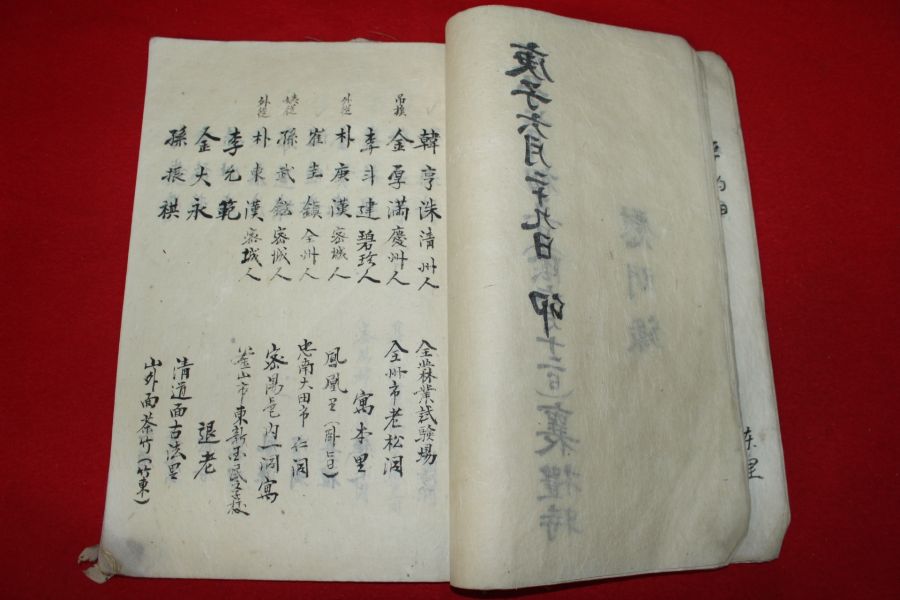 庚子六月二十九日 卯
韓亨洙 清州人 全州林業試驗場
吊狀 金厚滿 慶州人 全州市老松洞
李斗建 碧珍人 寓本里
外從 朴庚漢 密城人 鳳凰里
崔圭鎮 全州人 忠南大田市 仁洞
孫武鉉 密城人 密陽邑內一洞寓
外從 朴東漢 密城人 釜山市東新國民学校
李元範 退老
金大永 清道面古法里
孫振祺 山外面茶竹(竹東)